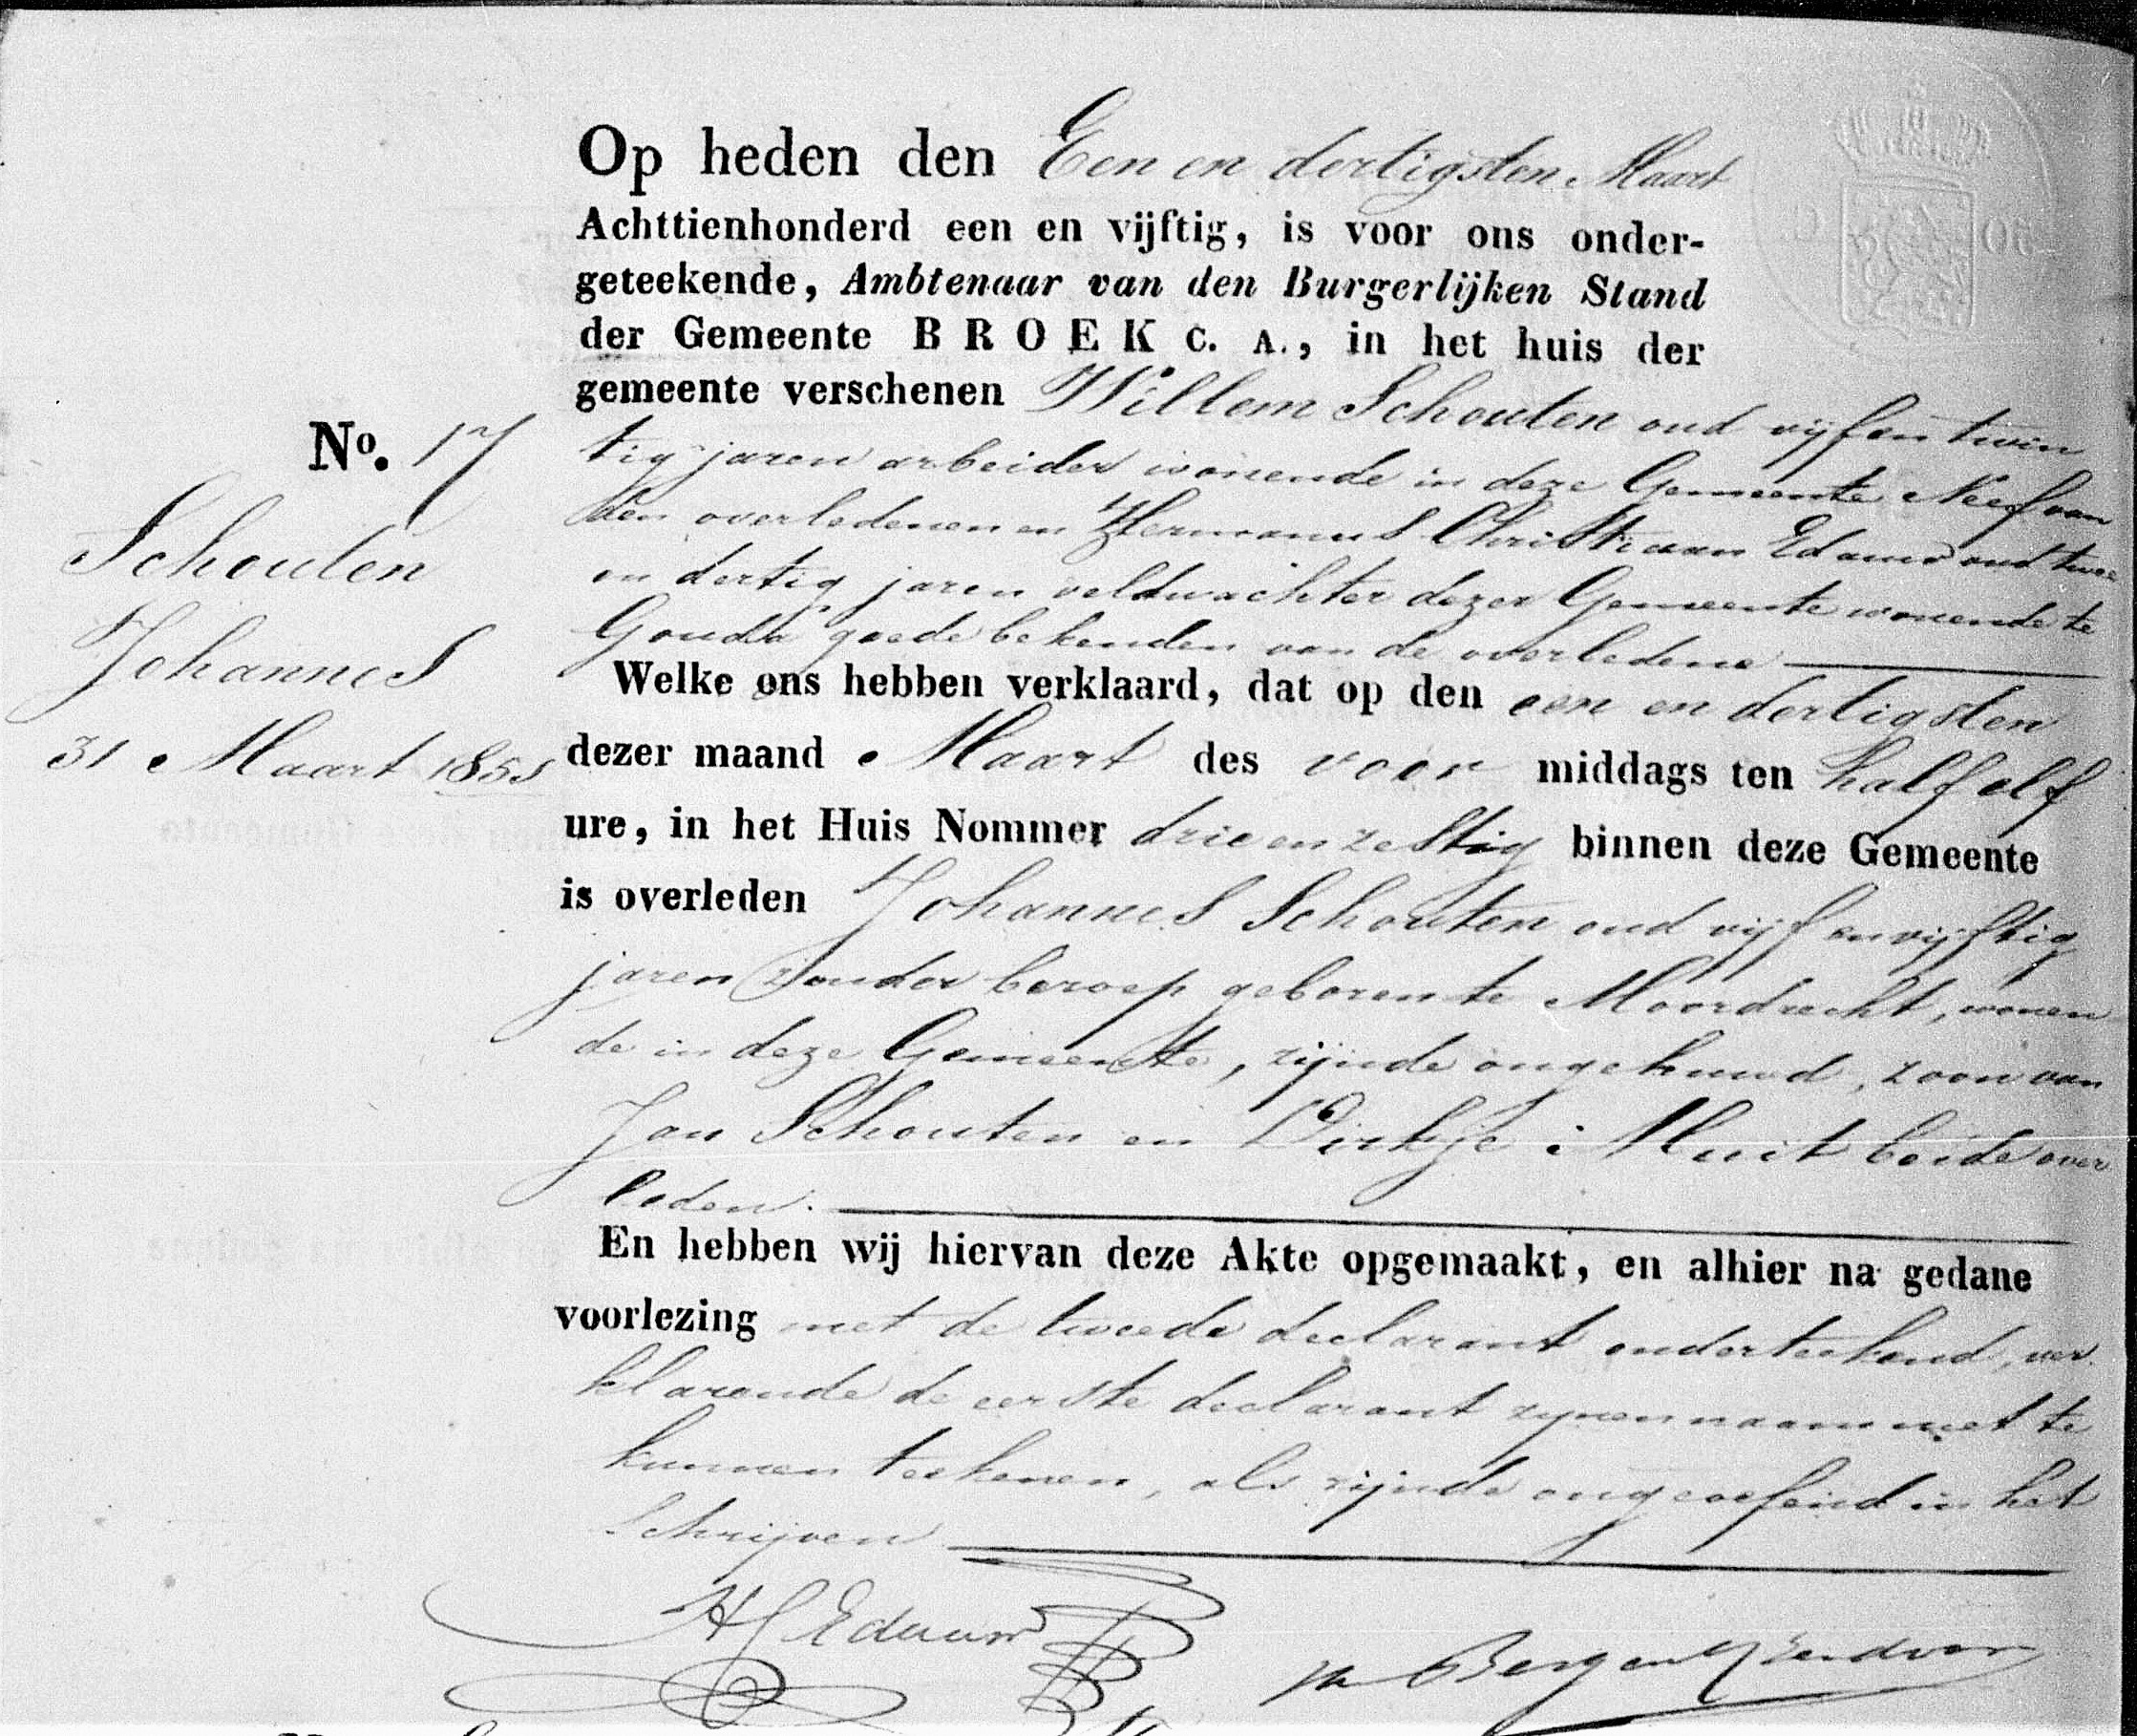 Op heden den Een en dertigsten Maart
Achttienhonderd een en vijftig, is voor ons onder-
geteekende, Ambtenaar van den Burgerlijken Stand
der Gemeente BROEK C. A., in het huis der
gemeente verschenen Willem Schouten oud vijf en twin
tig jaren arbeider wonende in deze Gemeente Neef van
den overledenen en Hermanus Christiaan Eduard oud twee
en dertig jaren veldwachter dezer Gemeente wonende te
Gouda goede bekenden van de overledene
No. 17
Schouten
Johannes
31 Maart 1851
Welke ons hebben verklaard, dat op den een en dertigsten
dezer maand Maart des voor middags ten half elf
ure, in het Huis Nommer drie en zestig binnen deze Gemeente
is overleden Johannes Schouten oud vijf en vijftig
jaren zonder beroep geboren te Moordrecht, wonen
de in deze Gemeente, zijnde ongehuwd, zoon van
Jan Schouten en Dirkje Muit beide over
leden.
En hebben wij hiervan deze Akte opgemaakt, en alhier na gedane
voorlezing met de tweede declarant onderteekend, ver
klarende de eerste declarant zynen naam niet te
kunnen teekenen, als zijnde ongeoefend in het
Schrijven